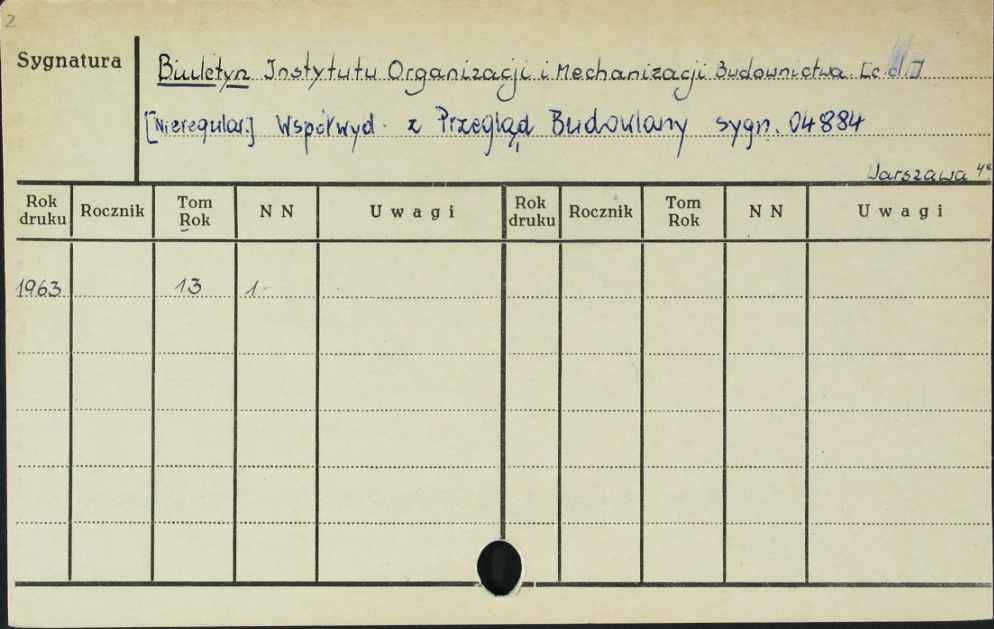 2
Sygnatura
Biuletyn Instytutu Organizacji i Mechanizacji Budownictwa. [c.d.]
[Nieregular.] Współwyd. z Przegląd Budowlany sygn. 04884
Warszawa 4°
Rok druku Rocznik Tom Rok N N Uwagi Rok druku Rocznik Tom Rok N N Uwagi
1963 13 1